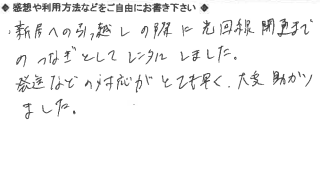 ◆ 感想や利用方法などをご自由にお書き下さい ◆
・新居への引っ越しの際に光回線開通まで
のつなぎとしてレンタルしました。
発送などの対応がとても早く、大変助かり
ました。